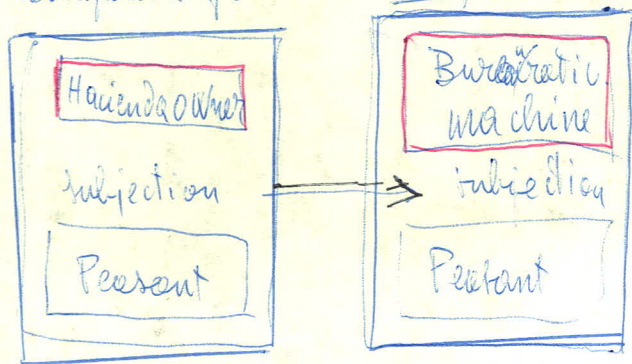 Hacienda owner
subjection
Peasant
machine
subjection
Peasant